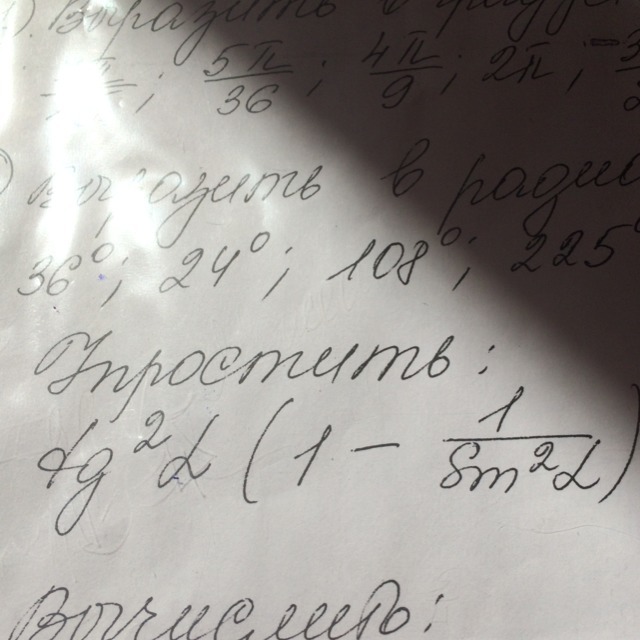 ) Выразить в граду
5π/36 ; 4π/9 ; 2π ; -3
) выразить в ради
36°; 24°; 108°; 225°
Упростить:
tg²α (1 - 1/Sin²α)
Вычислить: